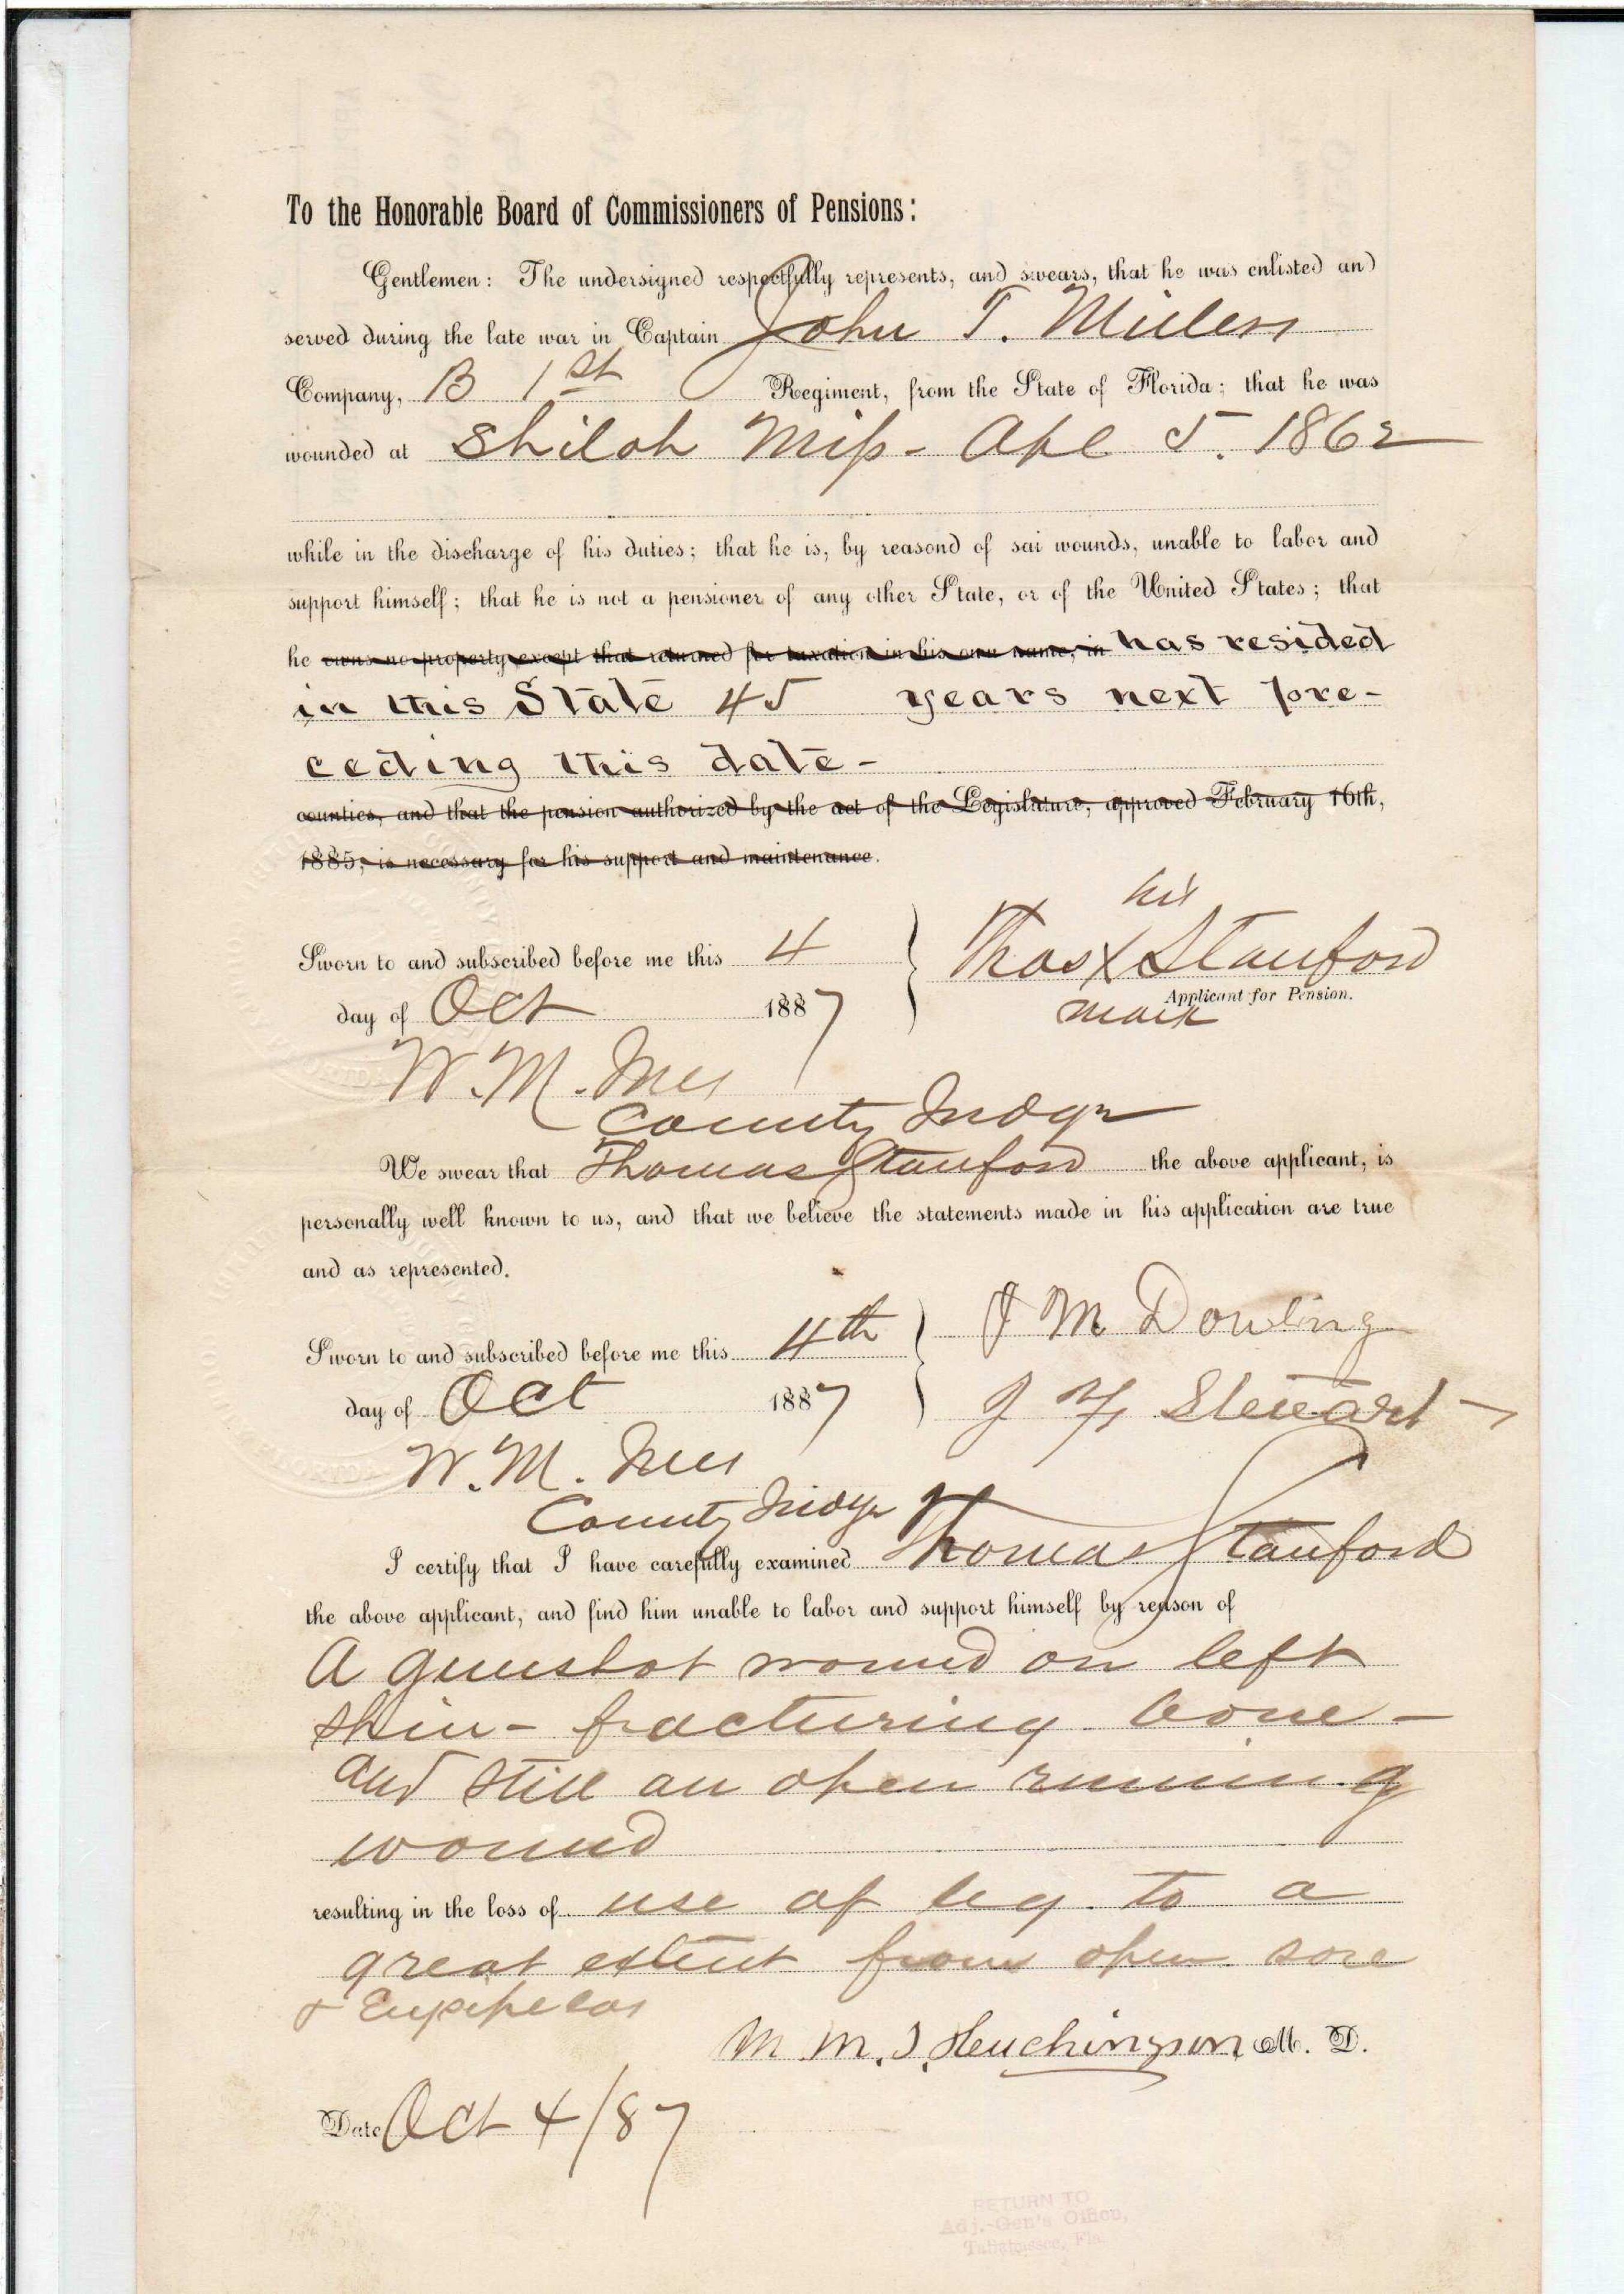 To the Honorable Board of Commissioners of Pensions:
Gentlemen: The undersigned respectfully represents, and swears, that he was enlisted and
served during the late war in Captain John T. Miller
Company, B 1st Regiment, from the State of Florida; that he was
wounded at Shiloh Miss - Apl 5. 1862
while in the discharge of his duties; that he is, by reasond of sai wounds, unable to labor and
support himself; that he is not a pensioner of any other State, or of the United States; that
he owns no property except that returned for taxation in his own name, in has resided
in this State 45 years next pre-
ceding this date -
counties, and that the pension authorized by the act of the Legislature, approved February 16th,
1885, is necessary for his support and maintenance.
his
Sworn to and subscribed before me this 4 Thos X Stanford
Applicant for Pension.
day of Oct 1887 mark
W. M. Ives
County Judge
We swear that Thomas Stanford the above applicant, is
personally well known to us, and that we believe the statements made in his application are true
and as represented.
Sworn to and subscribed before me this 4th J M Dowling
day of Oct 1887 J Stewart
W. M. Ives
County Judge
I certify that I have carefully examined Thomas Stanford
the above applicant, and find him unable to labor and support himself by reason of
A gunshot wound on left
shin - fracturing bone -
and still an open running
wound
resulting in the loss of use of leg to a
great extent from open sore
& Erysipelas
M. D.
Date Oct 4/87
RETURN TO
Adj.-Gen's Office,
Tallahassee, Fla.